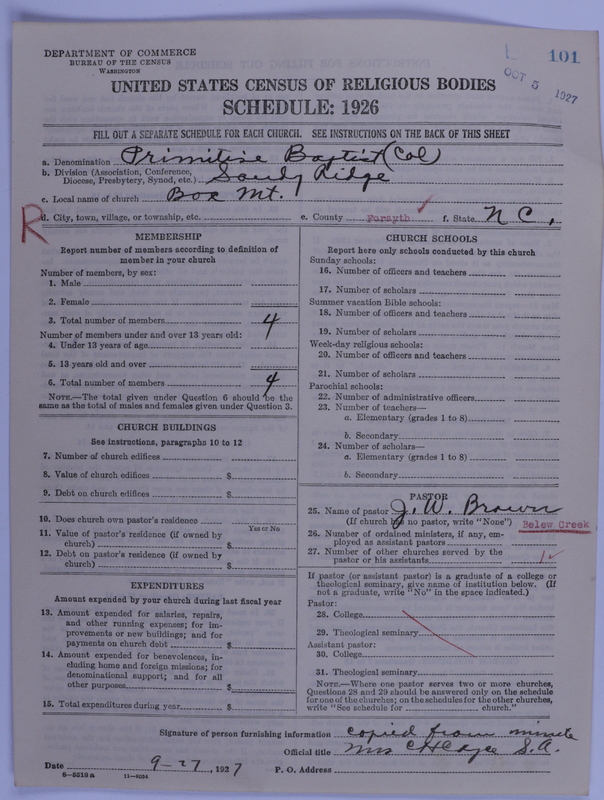 DEPARTMENT OF COMMERCE
BUREAU OF THE CENSUS
WASHINGTON
L 101
OCT 5 1927
UNITED STATES CENSUS OF RELIGIOUS BODIES
SCHEDULE: 1926
FILL OUT A SEPARATE SCHEDULE FOR EACH CHURCH. SEE INSTRUCTIONS ON THE BACK OF THIS SHEET
a. Denomination Primitive Baptist (Col)
b. Division (Association, Conference,
Diocese, Presbytery, Synod, etc.) Sandy Ridge
c. Local name of church Box Mt.
R
d. City, town, village, or township, etc. e. County Forsyth f. State N C.
MEMBERSHIP
Report number of members according to definition of
member in your church
Number of members, by sex:
1. Male
2. Female
3. Total number of members 4
Number of members under and over 13 years old:
4. Under 13 years of age
5. 13 years old and over
6. Total number of members 4
NOTE.—The total given under Question 6 should be the
same as the total of males and females given under Question 3.
CHURCH BUILDINGS
See instructions, paragraphs 10 to 12
7. Number of church edifices
8. Value of church edifices $
9. Debt on church edifices $
10. Does church own pastor's residence
Yes or No
11. Value of pastor's residence (if owned by
church) $
12. Debt on pastor's residence (if owned by
church) $
EXPENDITURES
Amount expended by your church during last fiscal year
13. Amount expended for salaries, repairs,
and other running expenses; for im-
provements or new buildings; and for
payments on church debt $
14. Amount expended for benevolences, in-
cluding home and foreign missions; for
denominational support; and for all
other purposes $
15. Total expenditures during year $
CHURCH SCHOOLS
Report here only schools conducted by this church
Sunday schools:
16. Number of officers and teachers
17. Number of scholars
Summer vacation Bible schools:
18. Number of officers and teachers
19. Number of scholars
Week-day religious schools:
20. Number of officers and teachers
21. Number of scholars
Parochial schools:
22. Number of administrative officers
23. Number of teachers—
a. Elementary (grades 1 to 8)
b. Secondary
24. Number of scholars—
a. Elementary (grades 1 to 8)
b. Secondary
PASTOR
25. Name of pastor J. W. Brown
(If church has no pastor, write "None") Belew Creek
26. Number of ordained ministers, if any, em-
ployed as assistant pastors
27. Number of other churches served by the
pastor or his assistants 1
If pastor (or assistant pastor) is a graduate of a college or
theological seminary, give name of institution below. (If
not a graduate, write "No" in the space indicated.)
Pastor:
28. College
29. Theological seminary
Assistant pastor:
30. College
31. Theological seminary
NOTE.—Where one pastor serves two or more churches,
Questions 28 and 29 should be answered only on the schedule
for one of the churches; on the schedules for the other churches,
write "See schedule for church."
Signature of person furnishing information copied from minute
Official title Mrs C H Cayce S. A.
Date 9-27, 1927 P. O. Address
8-5519 a 11-8034